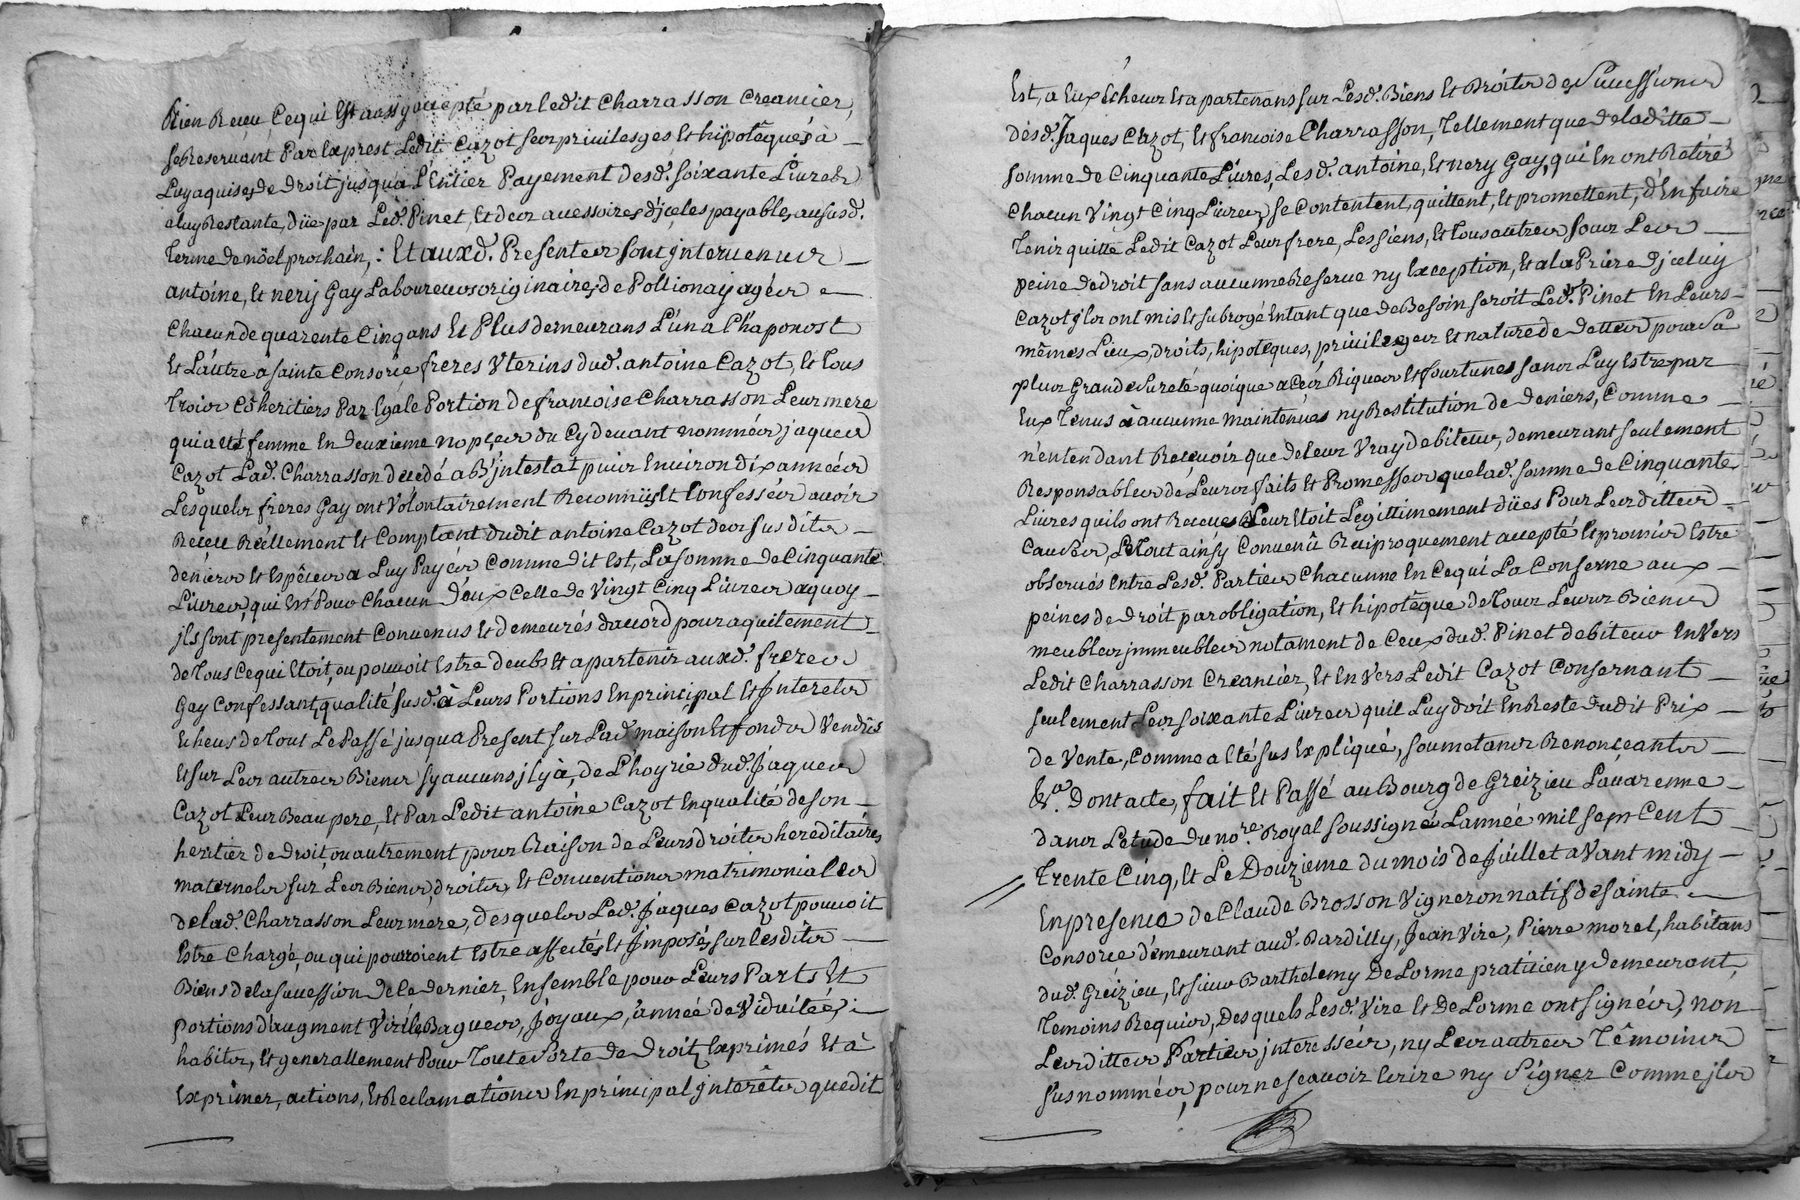 Bien Receu, Cequi Est aussy accepté par ledit Charrasson Creancier,
se Reservant Par Exprest Ledit Cazot ses privilesges Et hipotêques à
Luy aquises de droit jusqu'a L'Entier Payement desd. soixante Livres
a luy Restante, düe par Led. Pinet, Et des accessoires d'jceles payables, au susd.
Terme de nöel prochain, : Et aux d. Presentes sont jntervenus
antoine, Et nerij Gay Laboureurs originaires de Pollionay agés
Chacun de quarente Cinq ans Et Plus demeurans L'un a Chaponost
Et L'autre a sainte Consorce freres Vterins dud. antoine Cazot, Et tous
Trois Cöheritiers Par Egale Portion de francoise Charrasson Leur mere
qui a eté femme En deuxieme nopces du Cy devant nommés jaques
Cazot Lad. Charrasson decedé ab'jntestat puis Environ dix années
Lesquels freres Gay ont Volontairement Reconnüs Et Confessés avoir
Receu Réellement Et Comptant dudit antoine Cazot des susdits
deniers Et Espêces a Luy Payés Comme dit Est, La somme de Cinquante
Livres, qui Est Pour Chacun D'eux Celle de Vingt Cinq Livres aquoy
jls sont presentement Convenus Et demeurés d'accord pour aquitement
de Tous Cequi Etoit, ou pouvoit Estre deubs Et apartenir aux d. freres
Gay Confessant, qualité susd. à Leurs Portions En principal Et Jnterets
Echeus de Tout Le Passé jusqu'a Present sur Lad. maison Et fonds Vendüs
Et sur Les autres Biens sy aucuns jl y à, de L'hoyrie dud. Jaques
Cazot Leur Beau pere, Et Par Ledit antoine Cazot En qualité de son
heritier de Droit ou autrement pour Raison de Leurs droits hereditaires
maternels sur Les Biens, droits, Et Conventions matrimoniales
de lad. Charrasson Leur mere, desquels Led. Jaques Cazot pouvoit
Estre Chargé, ou qui pourroient Estre affectés Et Jmposés sur lesdits
Biens de la succession de Ce dernier, Ensemble pour Leurs Parts Et
portions d'augment Virile, Bagues, Joyaux, année de Viduitée,
habits, Et generallement Pour Toute Sorte de Droit Exprimés Et a
Exprimer, actions, Et Reclamations En principal jnterêts que dit
Est, a Eux Echeus Et apartenans sur Lesd. Biens Et Droits des Successions
desd. Jaques Cazot, Et francoise Charrasson, Tellement que de laditte
somme de Cinquante Livres, Lesd. antoine, Et nery Gay, qui En ont Retiré
Chacun Vingt Cinq Livres, se Contentent, quittent, Et promettent, d'En faire
Tenir quitte Ledit Cazot Leur frere, Les siens, Et Tous autres sous Les
peine de droit sans aucunne Reserve ny Exception, Et a la Priere d'jceluy
Cazot jls ont mis Et subrogé Entant que de Besoin seroit Led. Pinet En Leurs
mêmes Lieux, droits, hipoteques, privileges Et nature de Dettes pour Sa
plus Grande Sureté quoique a Ces Riques Et fourtunes sans Luy Estre par
Eux Tenus à aucunne maintenues ny Restitution de deniers, Comme
n'entendant Recevoir que de leur Vray debiteur, demeurant seulement
Responsables de Leurs faits Et Promesses que lad. somme de Cinquante
Livres quils ont Receues Leur Etoit Legittimement düés Pour Lesdittes
Causes, Le Tout ainsy Convenü Reciproquement accepté Et promis Estre
observés Entre Lesd. Parties Chacunne En Cequi La Conserne aux
peines de droit par obligation, Et hipotêque de Tous Leurs Biens
meubles jmmeubles notament de Ceux dud. Pinet debiteur EnVers
Ledit Charrasson Creancier, Et EnVers Ledit Cazot Consernant
seulement Les soixante Livres quil Luy doit En Reste dudit Prix
de Vente, Comme a Eté sus Expliqué, soumetans Renonceants
&a. Dont acte, fait Et Passé au Bourg de Greizieu Lavarenne
dans L'etude du nore. Royal soussigné L'année mil sept Cent
Trente Cinq, Et Le Douzieme du mois de Juillet aVant midy
En presence de Claude Brosson Vigneron natif de sainte
Consorce demeurant aud. Dardilly, Jean Vire, Pierre morel, habitans
dud. Greizieu, Et sieur Barthelemy DeLorme praticien y demeurant,
Temoins Requis, Desquels Lesd. Vire Et DeLorme ont signés, non
Lesdittes Parties jnteressés, ny Les autres Têmoins
susnommés, pour ne sçavoir Ecrire ny Signer Comme jls